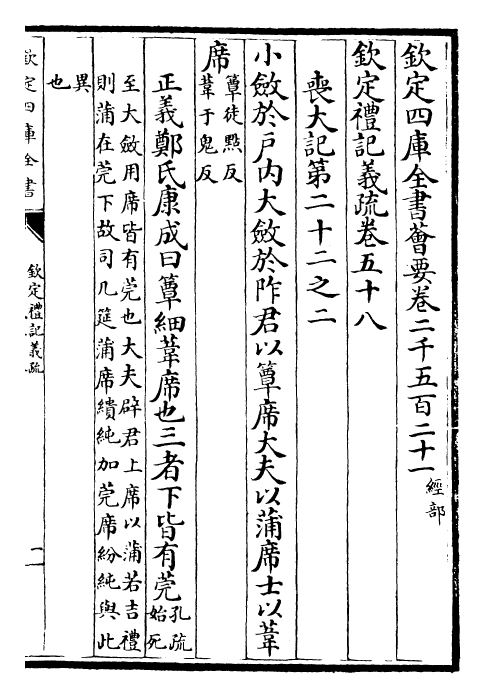 欽定四庫全書薈要卷二千五百二十一 經部
欽定禮記義疏卷五十八
喪大記第二十二之二
小斂於戶內大斂於阼君以簟席大夫以蒲席士以葦
席 簟徒㸃反
葦于鬼反
正義鄭氏康成曰簟細葦席也三者下皆有莞 孔疏
始死
至大斂用席皆有莞也大夫辟君上席以蒲若吉禮
則蒲在莞下故司几筵蒲席繢純加莞席紛純與此
異
也
欽定四庫全書
欽定禮記義疏
二